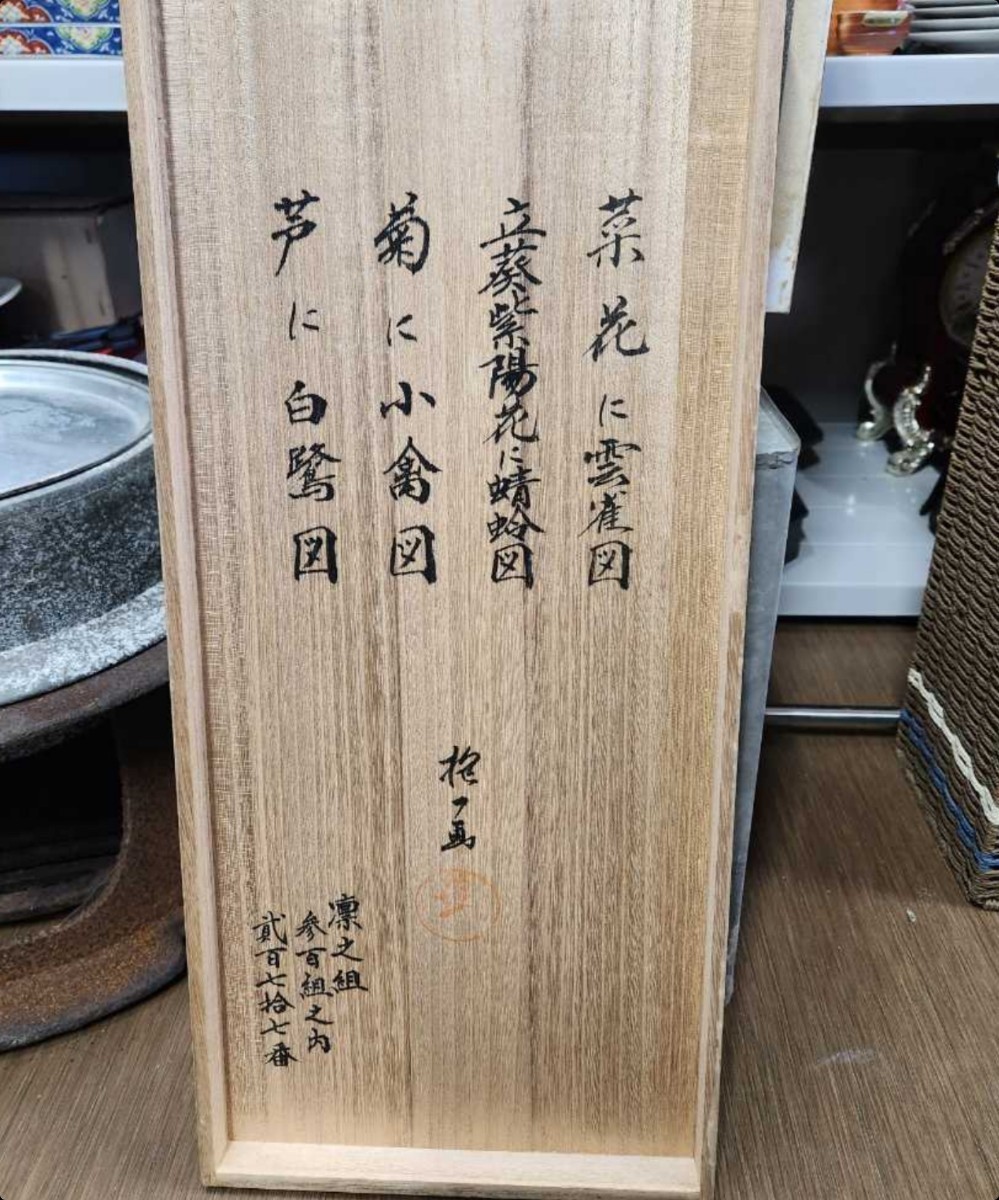 菜花に雲雀図
立葵紫陽花に蜻蛉図
菊に小禽図
芦に白鷺図
抱一画
凛之組
参百組之内
貳百七拾七番